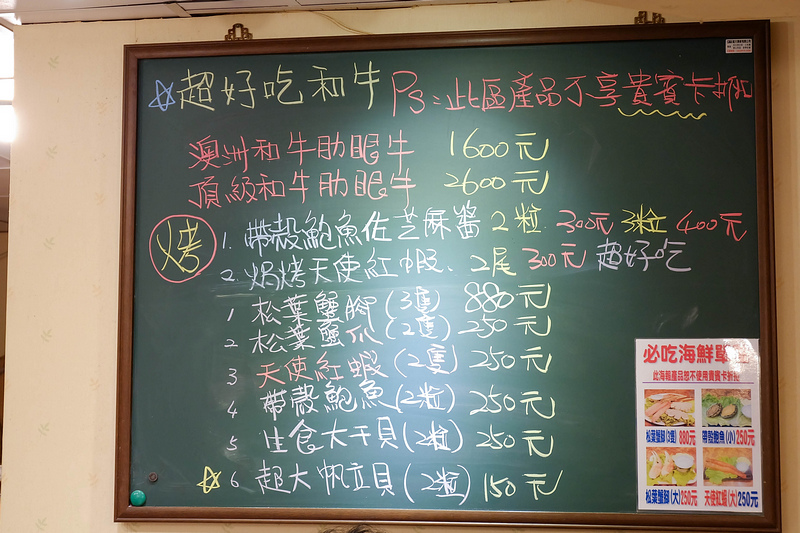 ☆超好吃和牛 Ps:此區產品不享貴賓卡折扣
澳洲和牛肋眼牛 1600元
頂級和牛肋眼牛 2600元
烤
1. 帶殼鮑魚佐芝麻醬 2粒 300元 3粒 400元
2. 焗烤天使紅蝦. 2尾 300元 超好吃
1 松葉蟹腳(3隻) 880元
2 松葉蟹爪(2隻) 250元
3 天使紅蝦(2隻) 250元
4 帶殼鮑魚(2粒) 250元
5 生食大干貝(2粒) 250元
☆ 6 超大帆立貝(2粒) 150元
必吃海鮮單
此海報產品恕不使用貴賓卡折扣
松葉蟹腳(3隻) 880元
帶殼鮑魚(小) 250元
松葉蟹腳(大) 250元
天使紅蝦(大) 250元